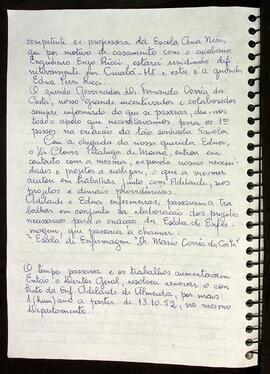 competente ex. professora da Escola Ana Neri,
que por motivo de casamento com o cuiabano
Engenheiro Enzo Ricci estará residindo defi
nitivamente em Cuiabá-Mt e esta é a querida
Edna Perri Ricci.
O quando Governador Dr. Fernando Corrêa da
Costa, nosso grande incentivador e colaborador
sempre informado do que se passava, deu-nos
todo o apoio que necessitávamos para os 1os
passos na criação da tão sonhada Escola.
Com a chegada da nossa querida Edna,
o Dr. Clovis Pitaluga de Moura, entrou em
contacto com a mesma, expondo nossas necessi
dades e projetos a realizar, o que a mesma
aceitou em trabalhar junto com Adelaide, nos
projetos e demais providências.
Adelaide e Edna enfermeiras, passaram a tra
balhar em conjunto na elaboração dos projetos
necessários para a criação da Escola de Enfer-
magem, que passaria a chamar.
"Escola de Enfermagem "Dr. Mário Corrêa da Costa"
O tempo passava e os trabalhos aumentavam
Então o Diretor Geral, resolveu renovar o con
trato da Enf. Adelaide de Almeida, por mais
1 (hum) ano a partir de 13.10.52, no mesmo
Departamento.